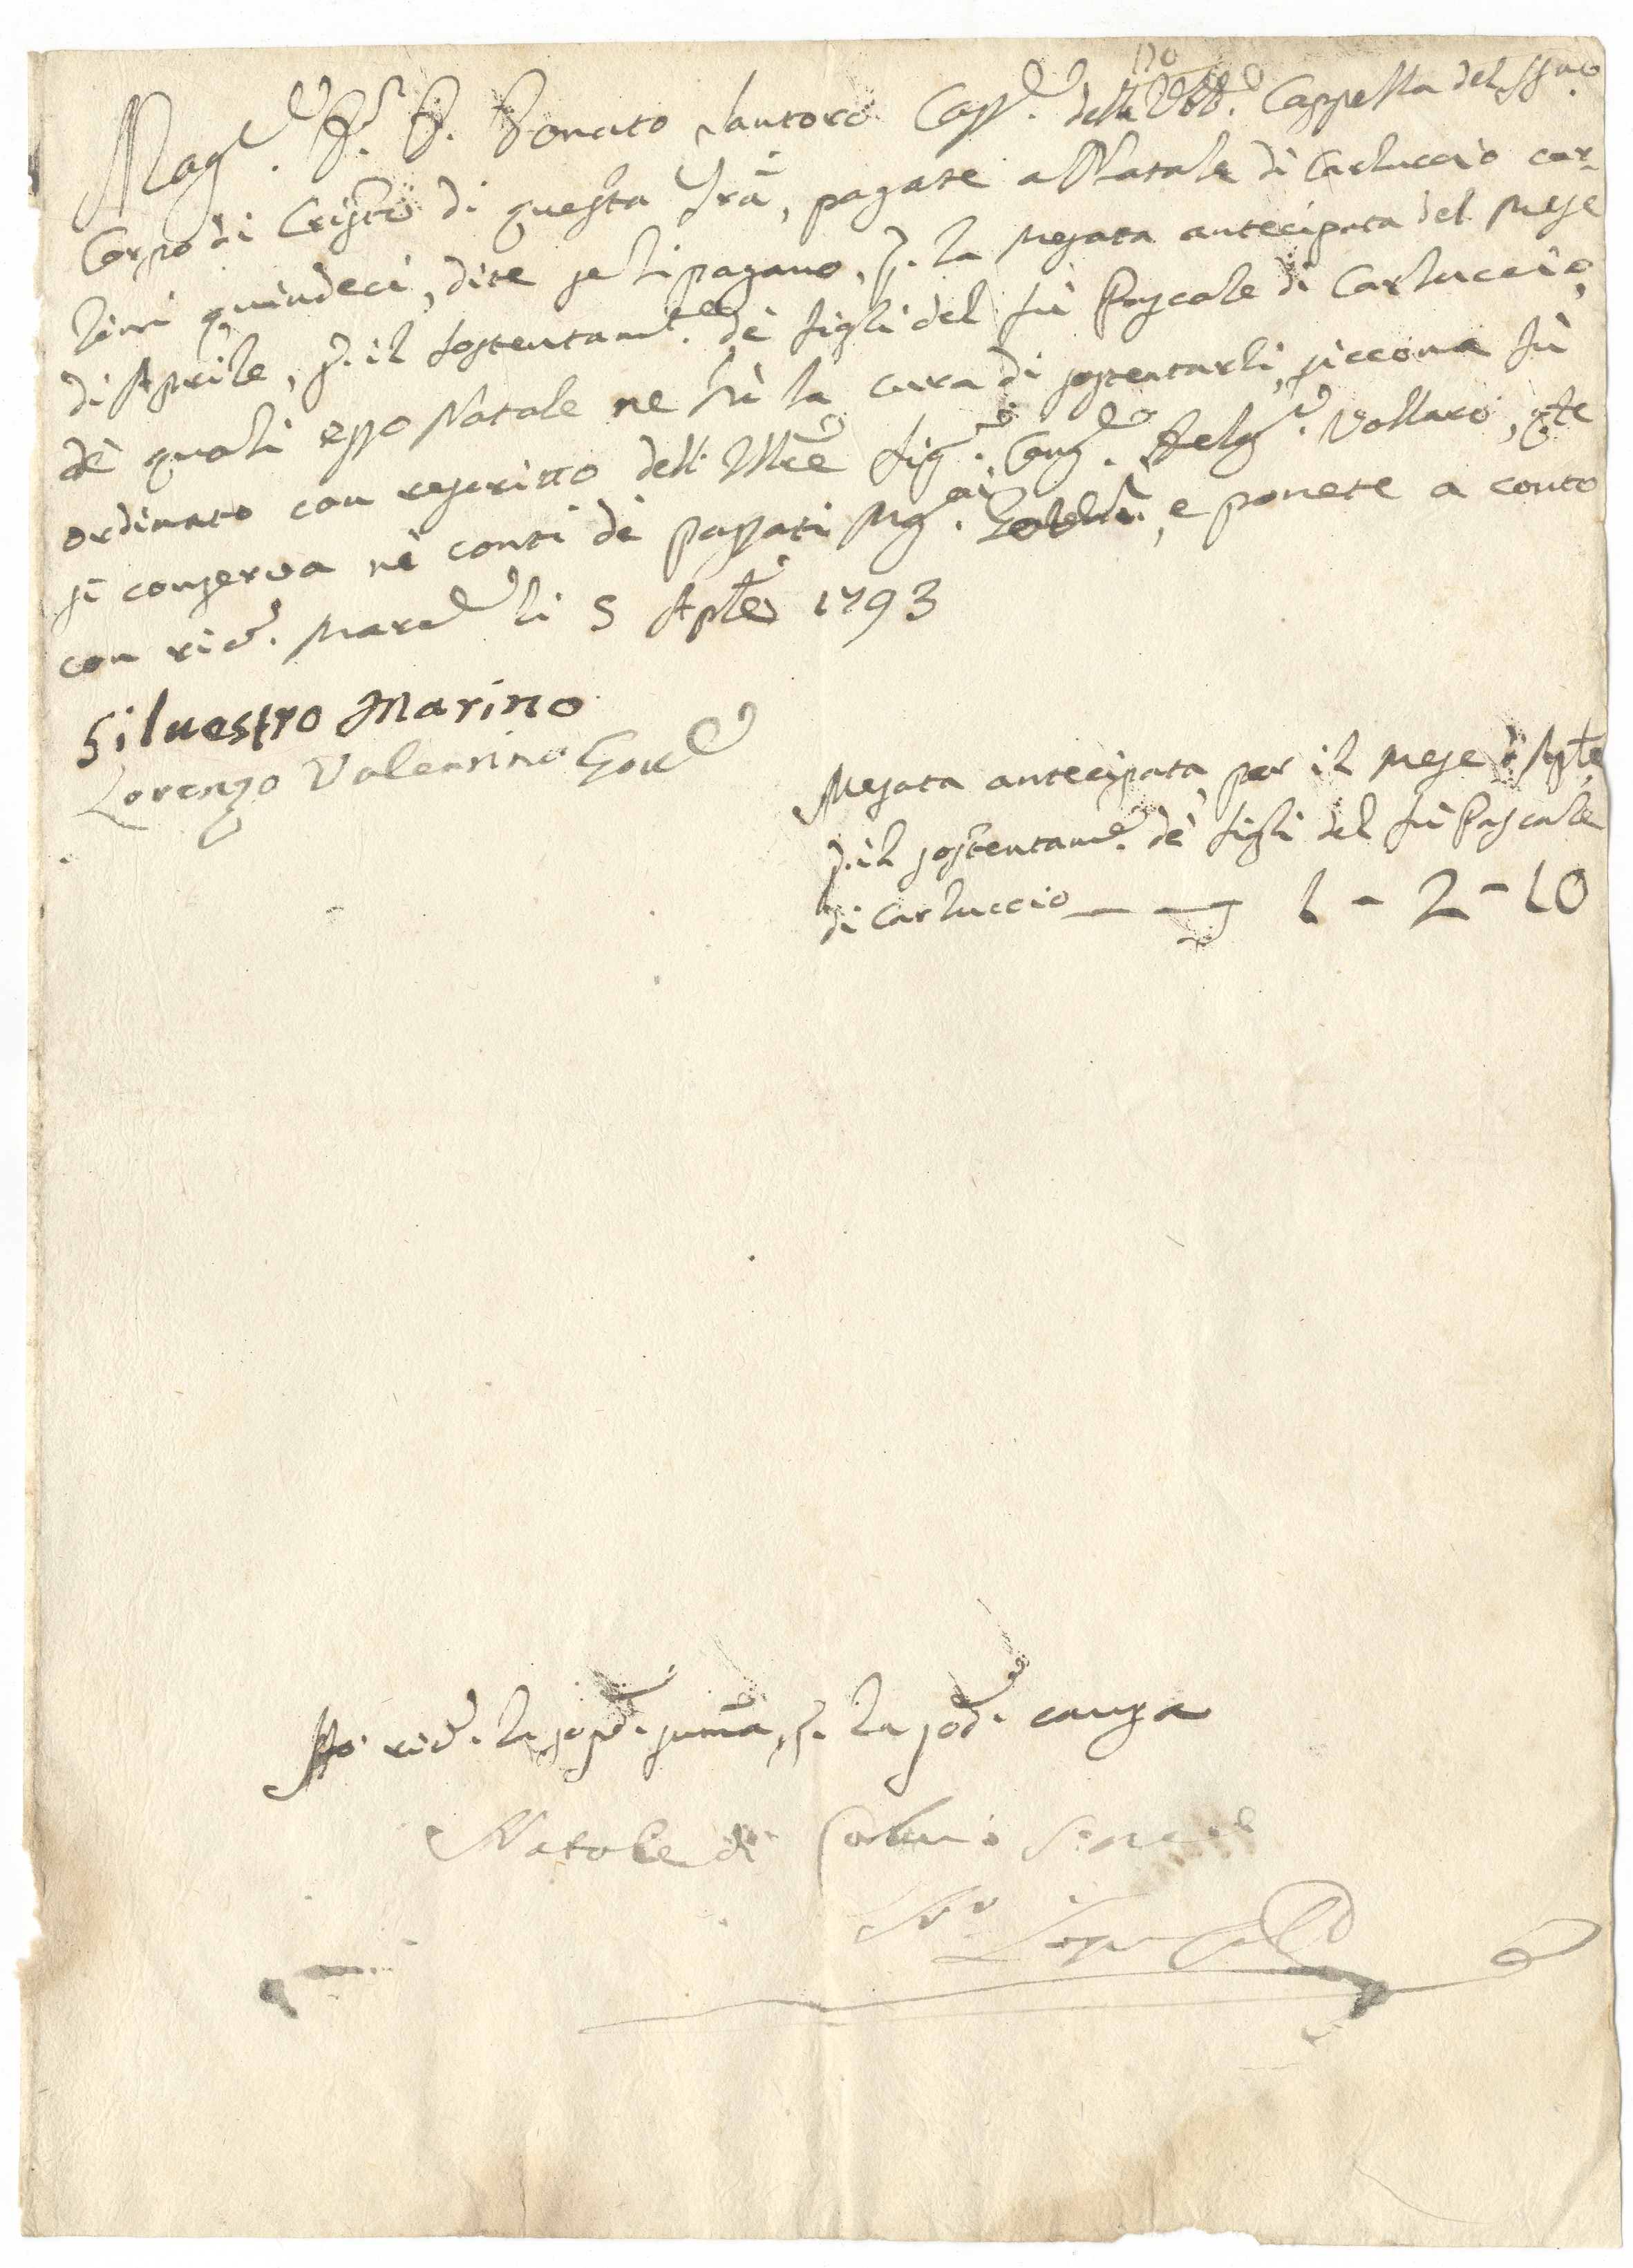 170
Mag.co D.r D. Donato Santoro Cass.e della Ven.e Cappella del SSmo
Corpo di Cristo di questa Trã, pagate a Natale di Carluccio car-
lini quindeci, dite se li pagano p. la mesata antecipata del mese
di Aprile, p. il sostentam.to dè figli del fù Pascale di Carluccio,
dè quali esso Natale ne hà la cura di sostentarli, siccome fù
ordinato con rescritto dell' Ill.e Sig.r Conz.o Deleg.to Vollaro, q.le
si conserva nè conti dè passati Mg.ci, e ponete a conto
con ric.o Marz.o li 5 Aple 1793
Siluestro Marino
Lorenzo Valentino Gou.e
Mesata antecipata per il mese d'Aple
p. il sostentam.o dè figli del fù Pascale
di Carluccio — — 1 - 2 - 10
Hò ric.o la sopd.a summa, p. la sod.a causa
Natale di